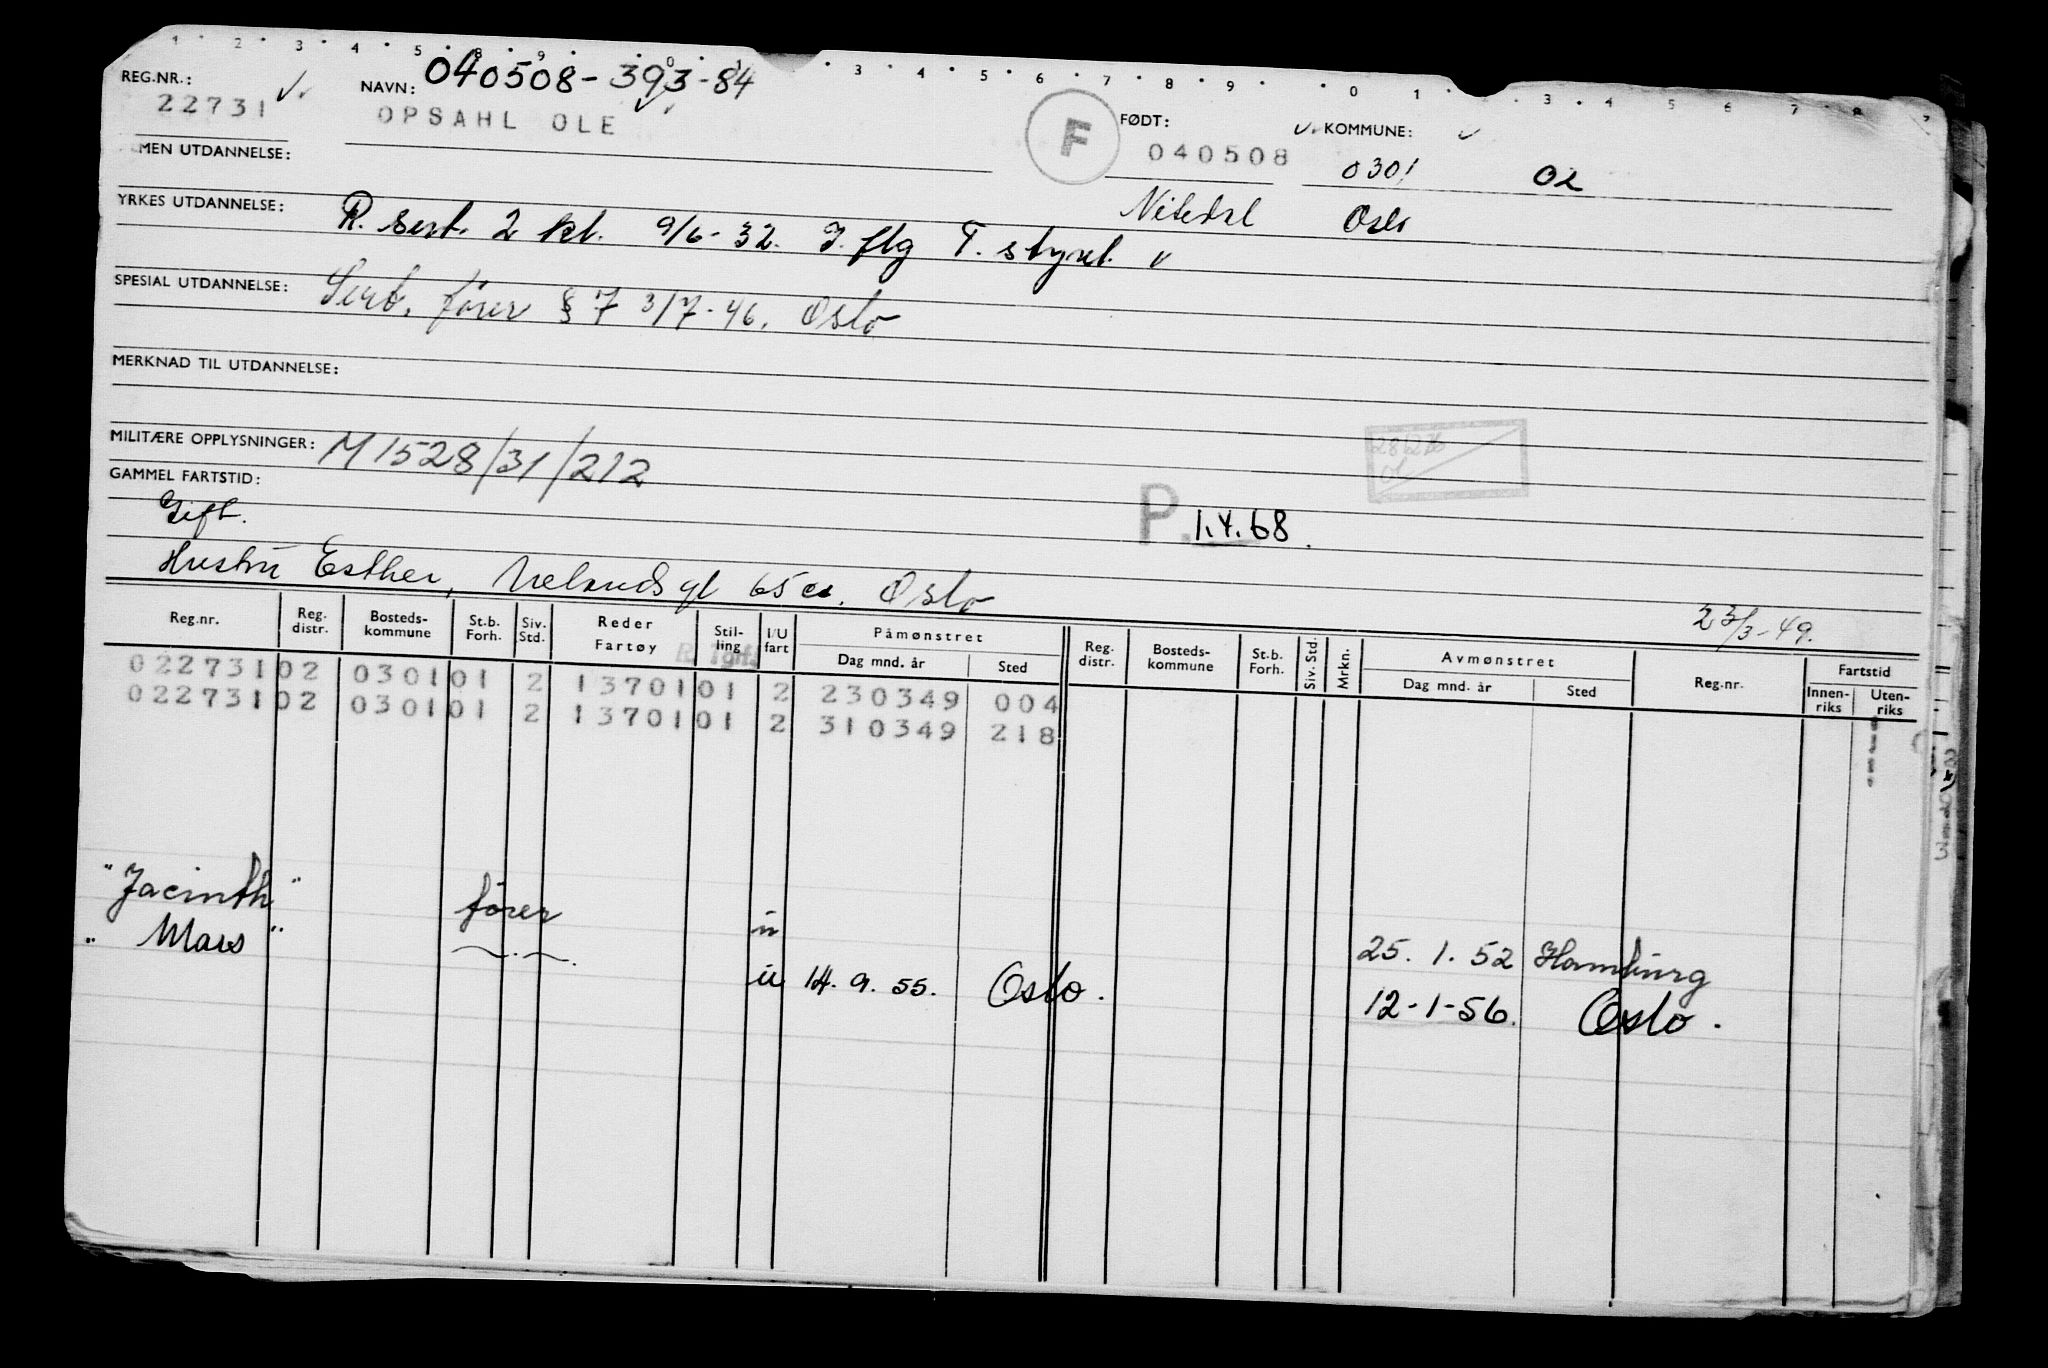 REG.NR.: NAVN: 040508-393-84
22731 OPSAHL OLE
F
FØDT: KOMMUNE:
040508 0301 02
MEN UTDANNELSE:
Nitedal Oslo
YRKES UTDANNELSE: R. sert. 2 kl. 9/6-32. I. flg T. styret.
SPESIAL UTDANNELSE: Sert. fører § 7 3/7-46. Oslo
MERKNAD TIL UTDANNELSE:
MILITÆRE OPPLYSNINGER: M 1528/31/212
GAMMEL FARTSTID:
Gift.
P. 1.4.68.
Hustru Esther, gt 65 Oslo
23/3-49.
Reg.nr. Reg. distr. Bosteds-kommune St.b. Forh. Siv. Std. Reder Fartøy Stil-ling I/U fart Påmønstret Dag mnd. år Sted Reg. distr. Bosteds-kommune St.b. Forh. Siv. Std. Mrkn. Avmønstret Dag mnd. år Sted Reg.nr. Fartstid Innen-riks Uten-riks
022731 02 0301 01 2 13701 01 2 230349 004
022731 02 0301 01 2 13701 01 2 310349 218
"Jacinth" fører u 25. 1. 52 Hamburg
"Mars" u 14. 9. 55. Oslo. 12-1-56. Oslo.